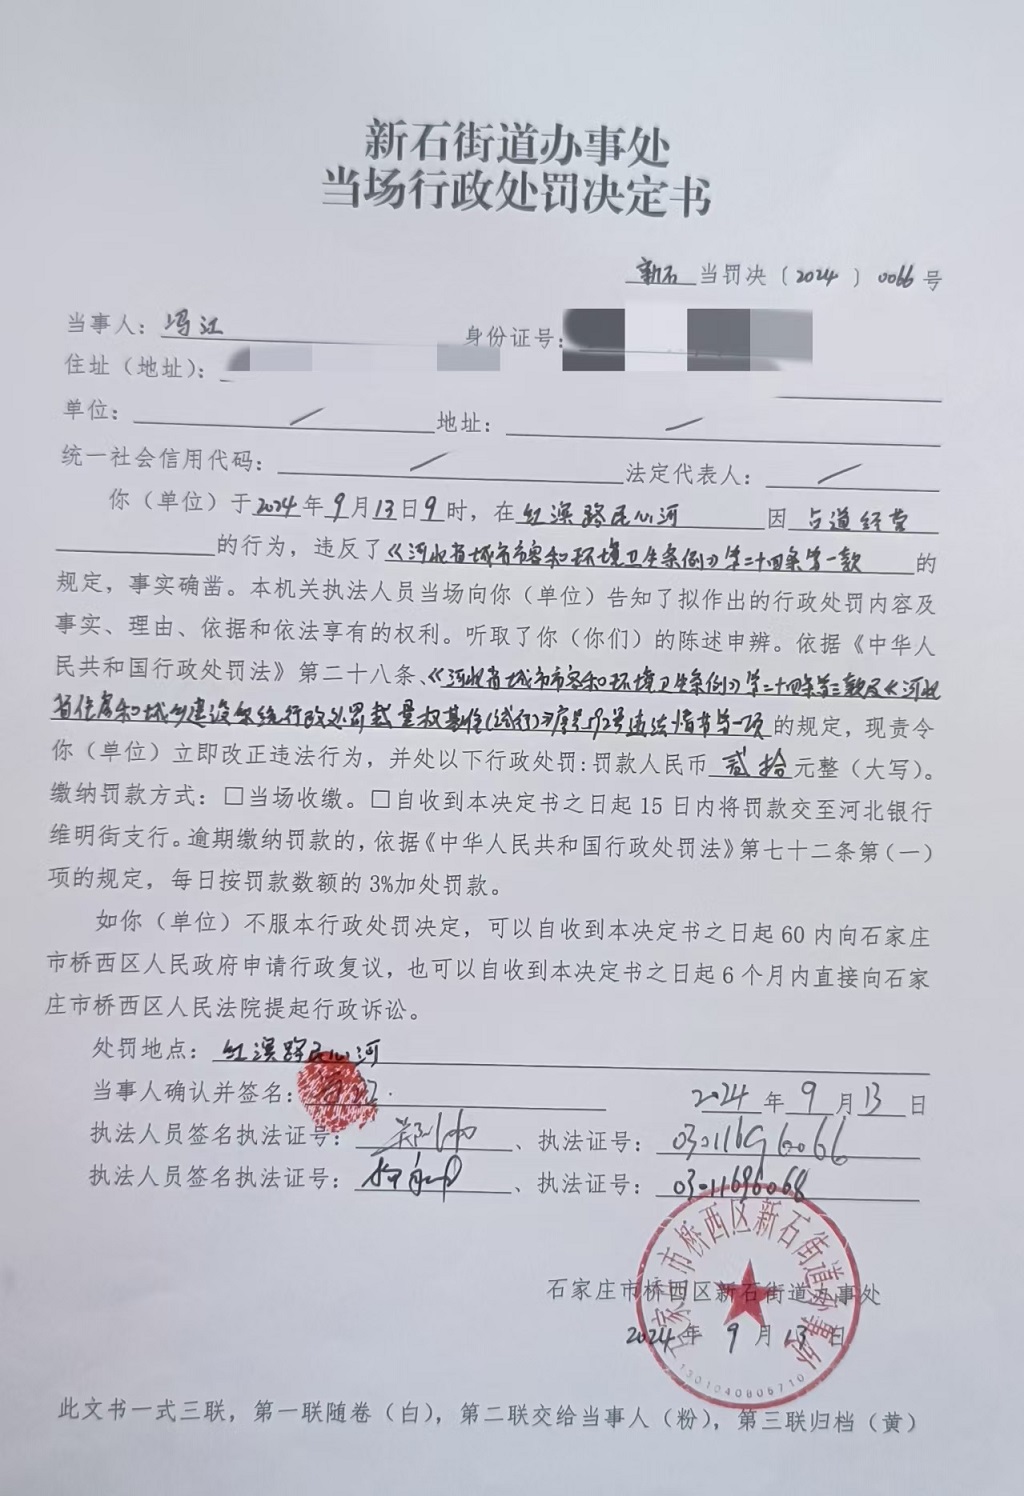 新石街道办事处
当场行政处罚决定书
新石 当罚决〔2024〕0066号
当事人：冯江 身份证号：
住址（地址）：
单位： / 地址： /
统一社会信用代码： / 法定代表人： /
你（单位）于2024年9月13日9时，在红溪路民心河 因 占道经营
的行为，违反了《河北省城市市容和环境卫生条例》第二十四条第一款 的
规定，事实确凿。本机关执法人员当场向你（单位）告知了拟作出的行政处罚内容及
事实、理由、依据和依法享有的权利。听取了你（你们）的陈述申辨。依据《中华人
民共和国行政处罚法》第二十八条、《河北省城市市容和环境卫生条例》第二十四条第三款及《河北
省住房和城乡建设系统行政处罚裁量权基准（试行）》序号592号违法情节第一项 的规定，现责令
你（单位）立即改正违法行为，并处以下行政处罚：罚款人民币 贰拾 元整（大写）。
缴纳罚款方式：□当场收缴。□自收到本决定书之日起15日内将罚款交至河北银行
维明街支行。逾期缴纳罚款的，依据《中华人民共和国行政处罚法》第七十二条第（一）
项的规定，每日按罚款数额的3%加处罚款。
如你（单位）不服本行政处罚决定，可以自收到本决定书之日起60内向石家庄
市桥西区人民政府申请行政复议，也可以自收到本决定书之日起6个月内直接向石家
庄市桥西区人民法院提起行政诉讼。
处罚地点：红溪路民心河
当事人确认并签名： 2024年9月13日
执法人员签名执法证号： 、执法证号：03011696066
执法人员签名执法证号： 、执法证号：03011696068
石家庄市桥西区新石街道办事处
2024年9月13日
石家庄市桥西区新石街道办事处
1301040806710
此文书一式三联，第一联随卷（白），第二联交给当事人（粉），第三联归档（黄）